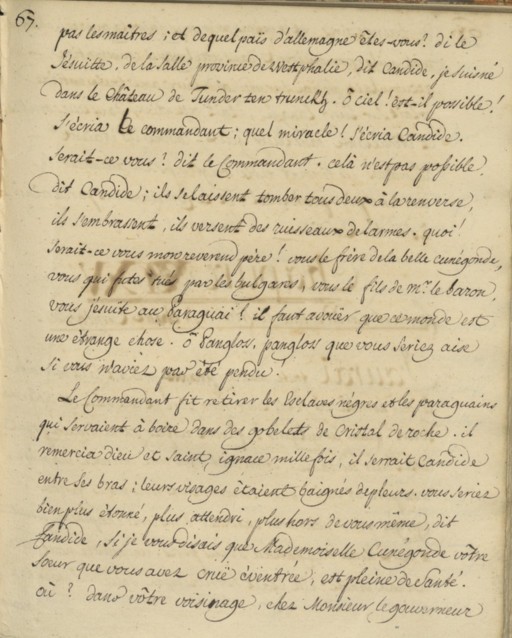 67.
pas les maîtres ; et de quel païs d'allemagne êtes-vous? dit le
Jésuitte, de la salle province de Westphalie, dit Candide, je suis né
dans le Château de Tunder ten trunckh. ô ciel! est-il possible!
s'écria le commandant ; quel miracle! s'écria Candide.
serait-ce vous? dit le Commandant. celà n'est pas possible,
dit Candide ; ils se laissent tomber tous deux à la renverse,
ils s'embrassent, ils versent des ruisseaux de larmes. quoi!
serait-ce vous mon reverend père! vous le frère de la belle cunégonde,
vous qui futes tué par les bulgares, vous le fils de Mr. le baron,
vous jésuite au Paraguai! il faut avoüer que ce monde est
une étrange chose. ô Panglos, panglos que vous seriez aise
si vous n'aviez pas été pendu!
Le Commandant fit retirer les Esclaves nègres et les paraguains
qui servaient à boire dans des gobelets de Cristal de roche. il
remercia dieu et saint ignace mille fois, il serrait Candide
entre ses bras ; leurs visages étaient baignés de pleurs. vous seriez
bien plus étonné, plus attendri, plus hors de vous même, dit
Candide, si je vous disais que Mademoiselle Cunégonde vôtre
soeur que vous avez crüe éventrée, est pleine de santé.
où? dans vôtre voisinage, chez Monsieur le gouverneur